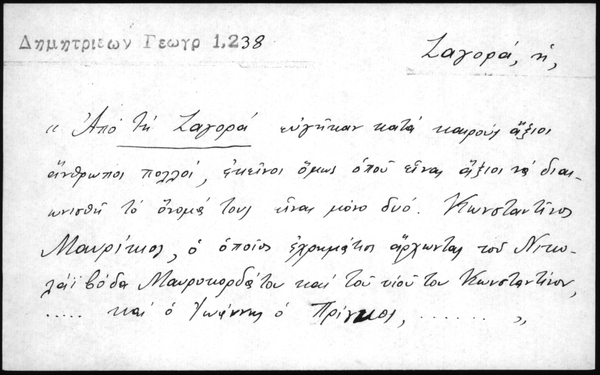 Δημητριεων Γεωγρ 1,238
Ζαγορά, ἡ,
« Ἀπὸ τὴ Ζαγορὰ εὐγῆκαν κατὰ καιροὺς ἄξιοι
ἄνθρωποι πολλοί, ἐκεῖνοι ὅμως ὁποῦ εἶναι ἄξιοι νὰ διαι-
ωνισθῆ τὸ ὄνομά τους εἶναι μόνο δυό. Κωνσταντῖνος
Μαυρίκιος, ὁ ὁποῖος ἐχρημάτισε ἄρχωντας τοῦ Νικο-
λάϊ βόδα Μαυροκορδάτου καὶ τοῦ υἱοῦ του Κωνσταντίνου,
..... καὶ ὁ Ἰωάννης ὁ Πρίγκος, ....... »